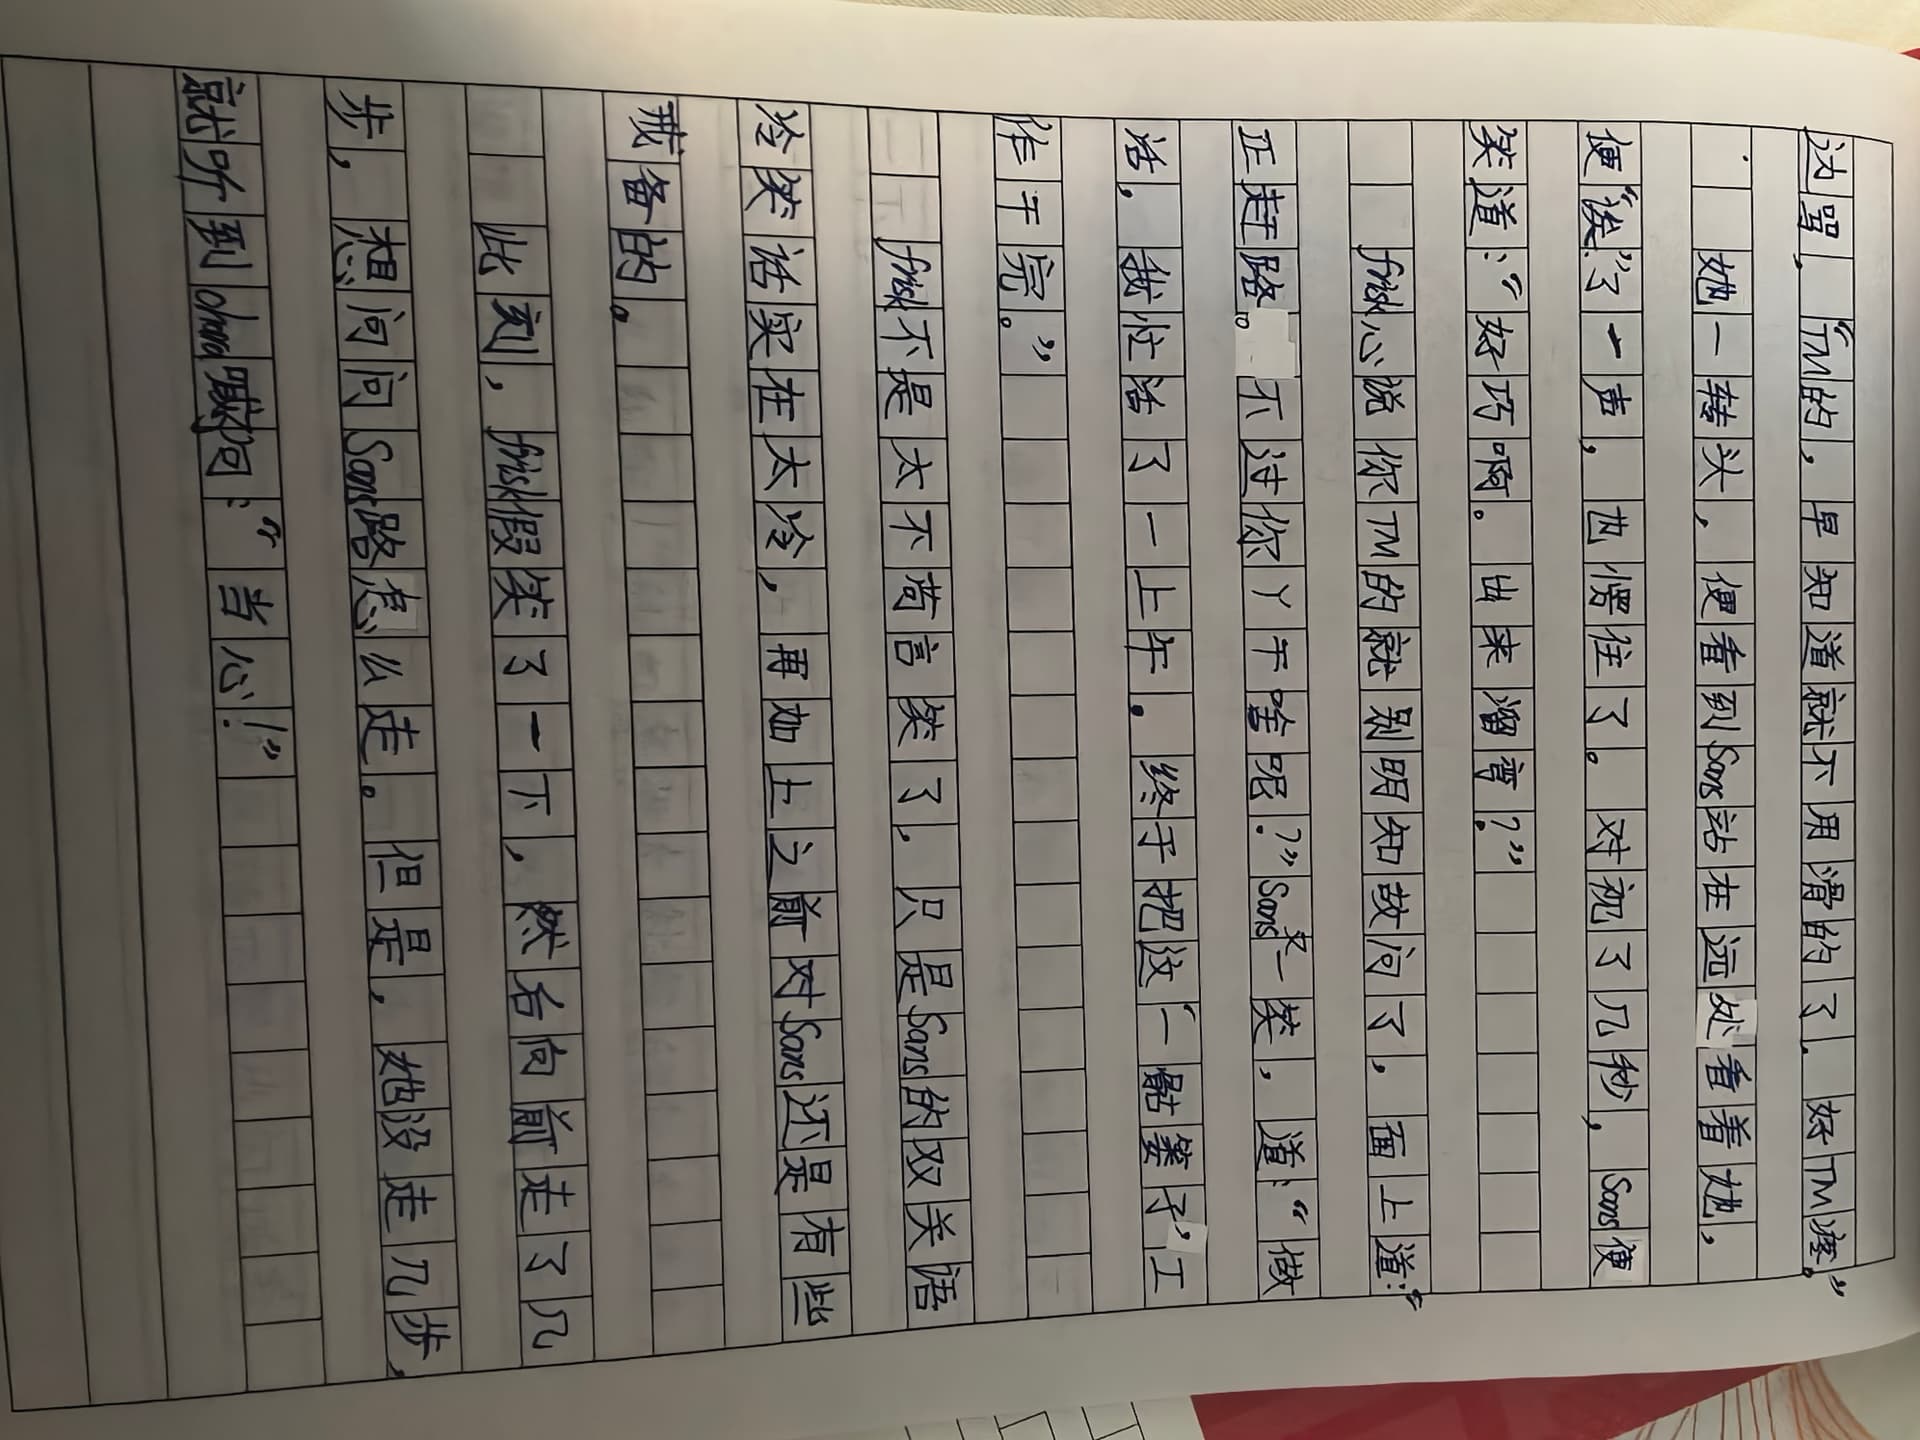 边骂，“TM的，早知道就不用滑的了，好TM疼。”
她一转头，便看到Sans站在远处看着她，
便“诶”了一声，也愣住了。对视了几秒，Sans便
笑道：“好巧啊。出来溜弯？”
frisk心说你TM的就别明知故问了，面上道：“
正赶路。不过你丫干啥呢？”Sans又一笑，道：“做
活，我忙活了一上午。终于把这“一骷篓子”工
作干完。”
frisk不是太不苟言笑了，只是Sans的双关语
冷笑话实在太冷，再加上之前对Sans还是有些
戒备的。
此刻，frisk假笑了一下，然后向前走了几
步，想问问Sans路怎么走。但是，她没走几步，
就听到chara喊叫：“当心！”